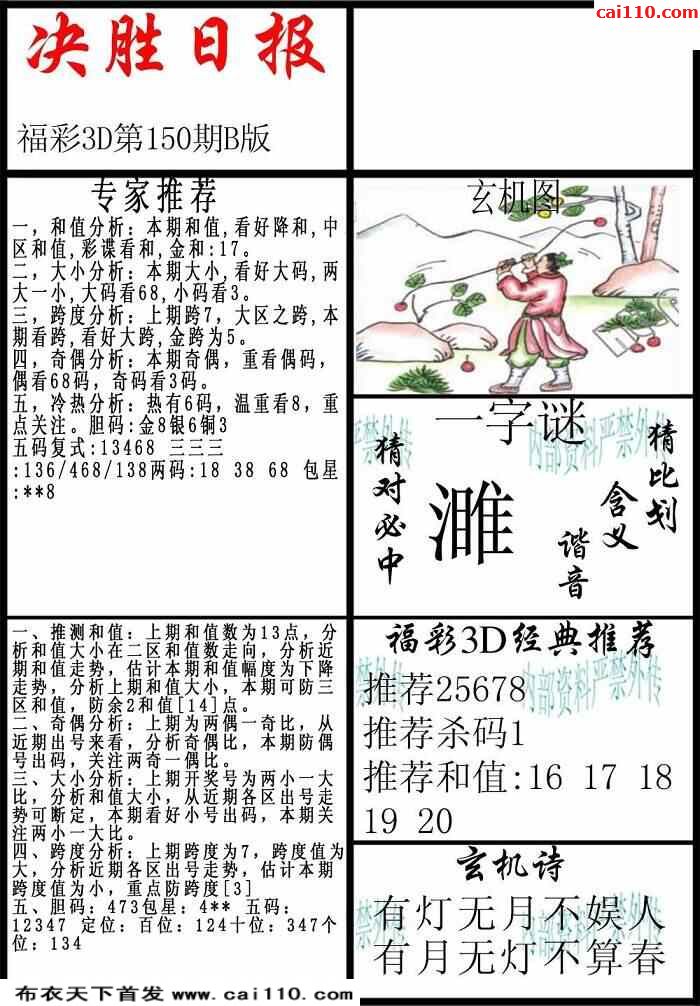 cai110.com
决胜日报
福彩3D第150期B版
专家推荐
一，和值分析：本期和值,看好降和,中
区和值,彩谍看和,金和:17。
二，大小分析：本期大小,看好大码,两
大一小,大码看68,小码看3。
三，跨度分析：上期跨7，大区之跨,本
期看跨,看好大跨,金跨为5。
四，奇偶分析：本期奇偶，重看偶码，
偶看68码，奇码看3码。
五，冷热分析：热有6码，温重看8，重
点关注。胆码:金8银6铜3
五码复式:13468 三三三
:136/468/138两码:18 38 68 包星
:**8
玄机图
一字谜
内部资料严禁外传
猜对必中
濉
猜比划
含义
谐音
一、推测和值：上期和值数为13点，分
析和值大小在二区和值数走向，分析近
期和值走势，估计本期和值幅度为下降
走势，分析上期和值大小，本期可防三
区和值，防余2和值[14]点。
二、奇偶分析：上期为两偶一奇比，从
近期出号来看，分析奇偶比，本期防偶
号出码，关注两奇一偶比。
三、大小分析：上期开奖号为两小一大
比，分析和值大小，从近期各区出号走
势可断定，本期看好小号出码，本期关
注两小一大比。
四、跨度分析：上期跨度为7，跨度值为
大，分析近期各区出号走势，估计本期
跨度值为小，重点防跨度[3]
五、胆码：473包星：4** 五码：
12347 定位：百位：124十位：347个
位：134
福彩3D经典推荐
内部资料严禁外传
推荐25678
推荐杀码1
推荐和值:16 17 18
19 20
玄机诗
内部资料严禁外传
有灯无月不娱人
有月无灯不算春
布衣天下首发 www.cai110.com